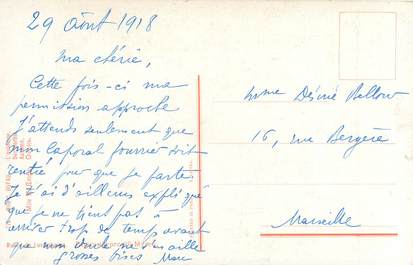 29 Août 1918
Ma chérie,
Cette fois-ci ma
permission approche
J'attends seulement que
mon Caporal fourrier soit
rentré pour que je parte.
Je t'ai d'ailleurs expliqué
que je ne tient pas à
arriver trop de temps avant
que mon
grosses bises Marc
Mme Désiré
16, rue Bergère
Marseille